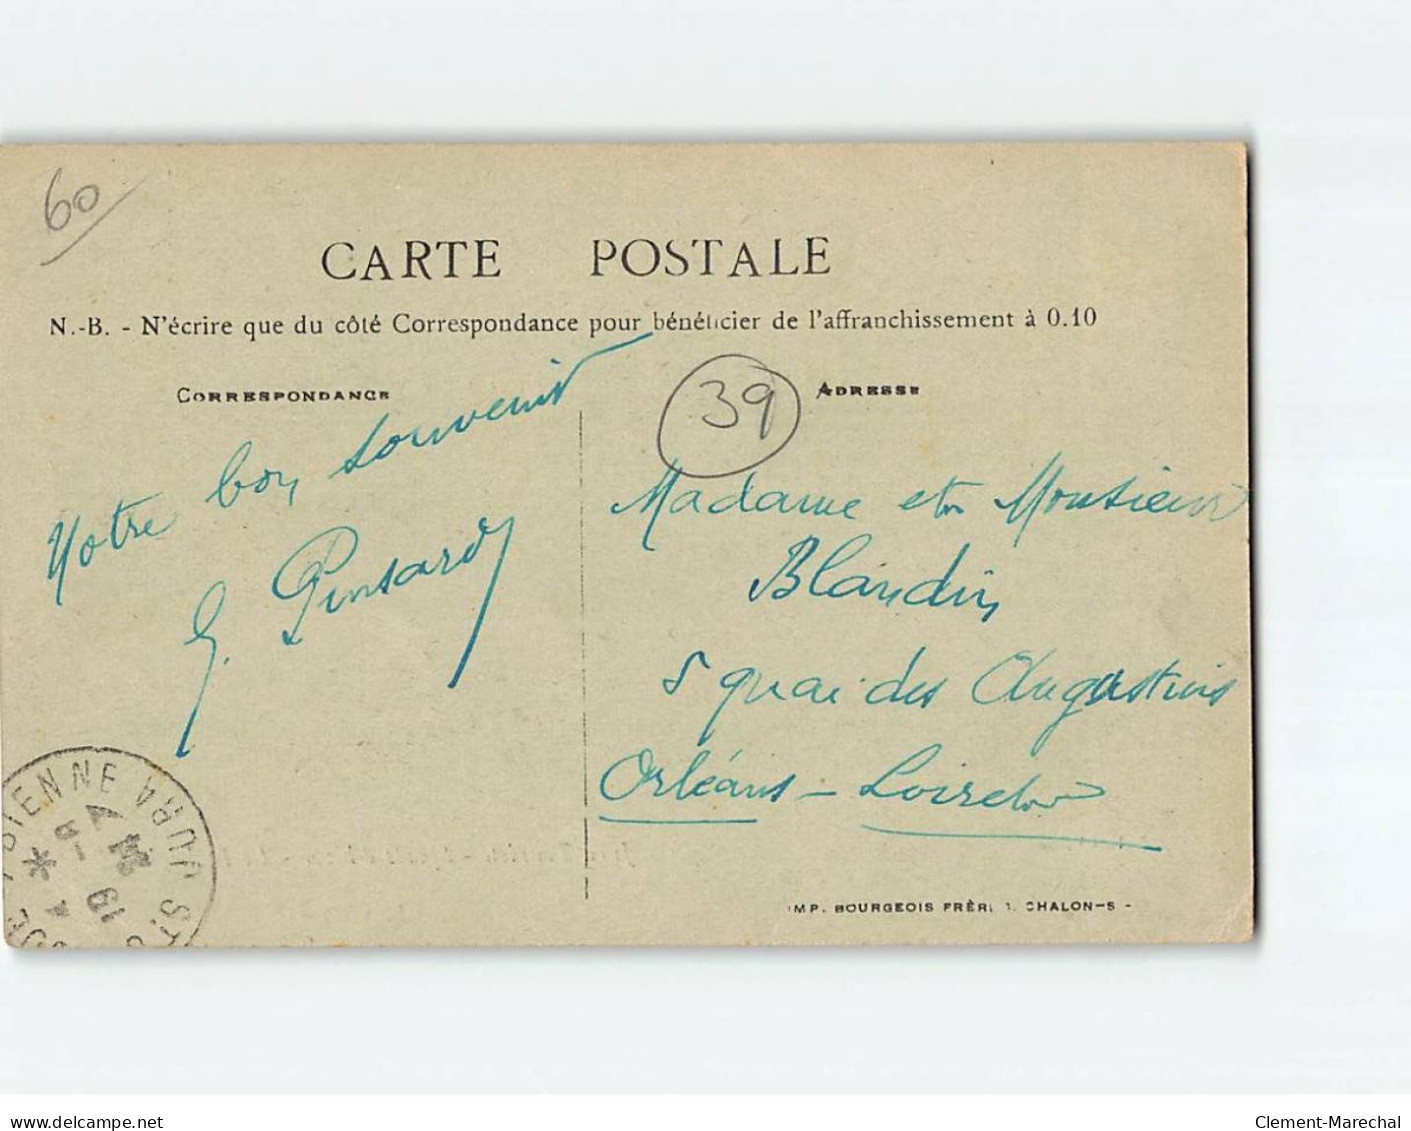 60
CARTE POSTALE
N.-B. - N'écrire que du côté Correspondance pour bénéficier de l'affranchissement à 0.10
CORRESPONDANCE
39
ADRESSE
Notre bon souvenir
G. Pinsard
Madame et Monsieur
Blandin
5 quai des Augustins
Orléans - Loiret
JURA
19
IMP. BOURGEOIS FRÈR. CHALON-S-
www.delcampe.net
Clement-Marechal